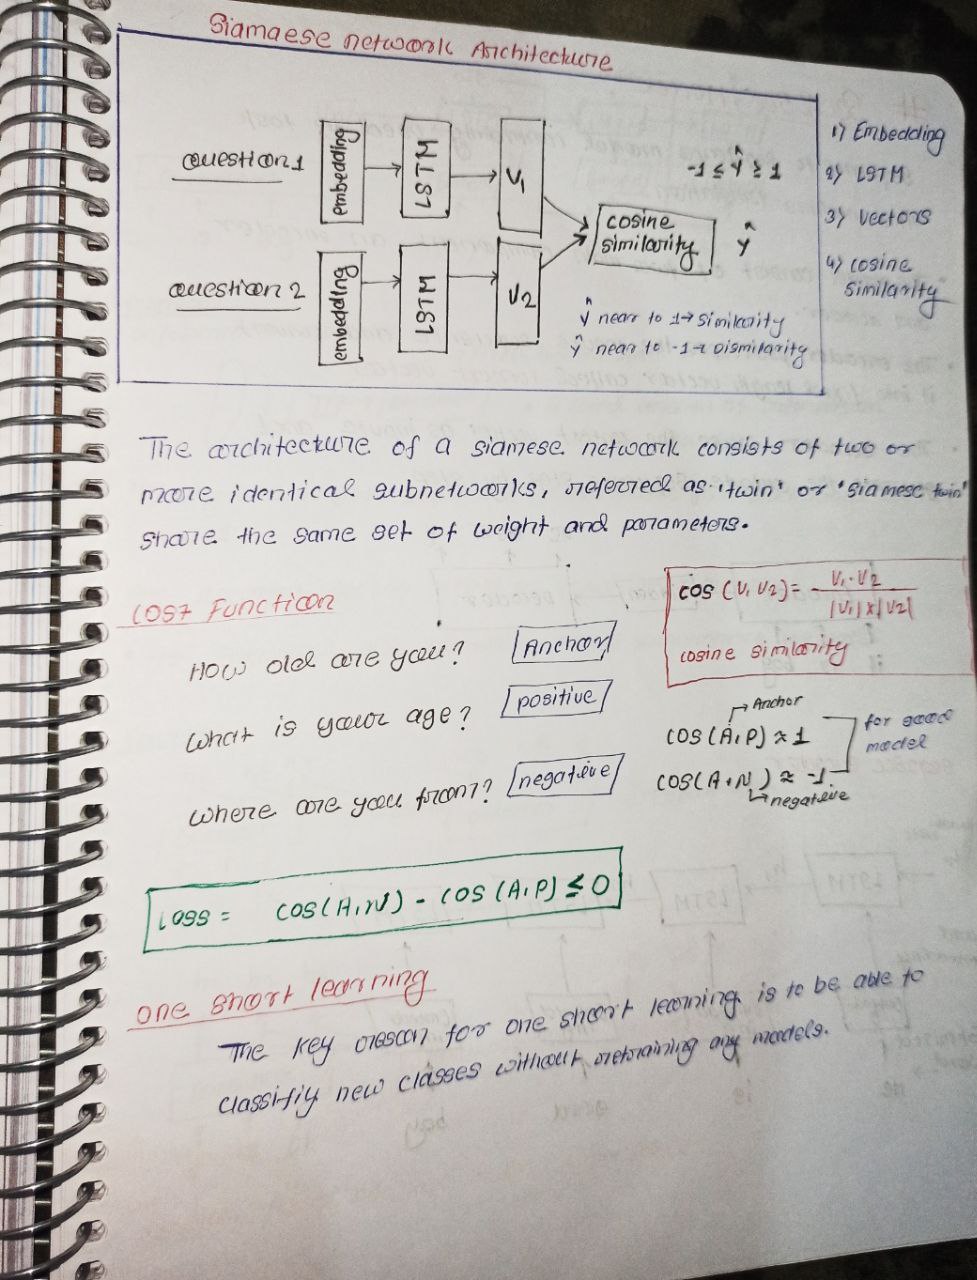 Siamaese network Architecture
Question 1
embedding
LSTM
V1
Question 2
embedding
LSTM
V2
cosine
similarity
-1 ≤ ŷ ≥ 1
ŷ
ŷ near to 1→ similarity
ŷ near to -1→ Dismilarity
1) Embedding
2) LSTM
3) Vectors
4) cosine
similarity
The architecture of a siamese network consists of two or
more identical subnetworks, referred as 'twin' or 'siamese twin'
share the same set of weight and parameters.
Lost Function
How old are you? Anchor
What is your age? positive
Where are you from? negative
cos (V1 V2) = V1 . V2
|V1| x |V2|
cosine similarity
Anchor
cos(A, P) ≈ 1
cos(A, N) ≈ -1
negative
for good
model
Loss = cos(A, N) - cos (A, P) ≤ 0
One short learning
The key reason for one short learning is to be able to
classifiy new classes without retraining any models.